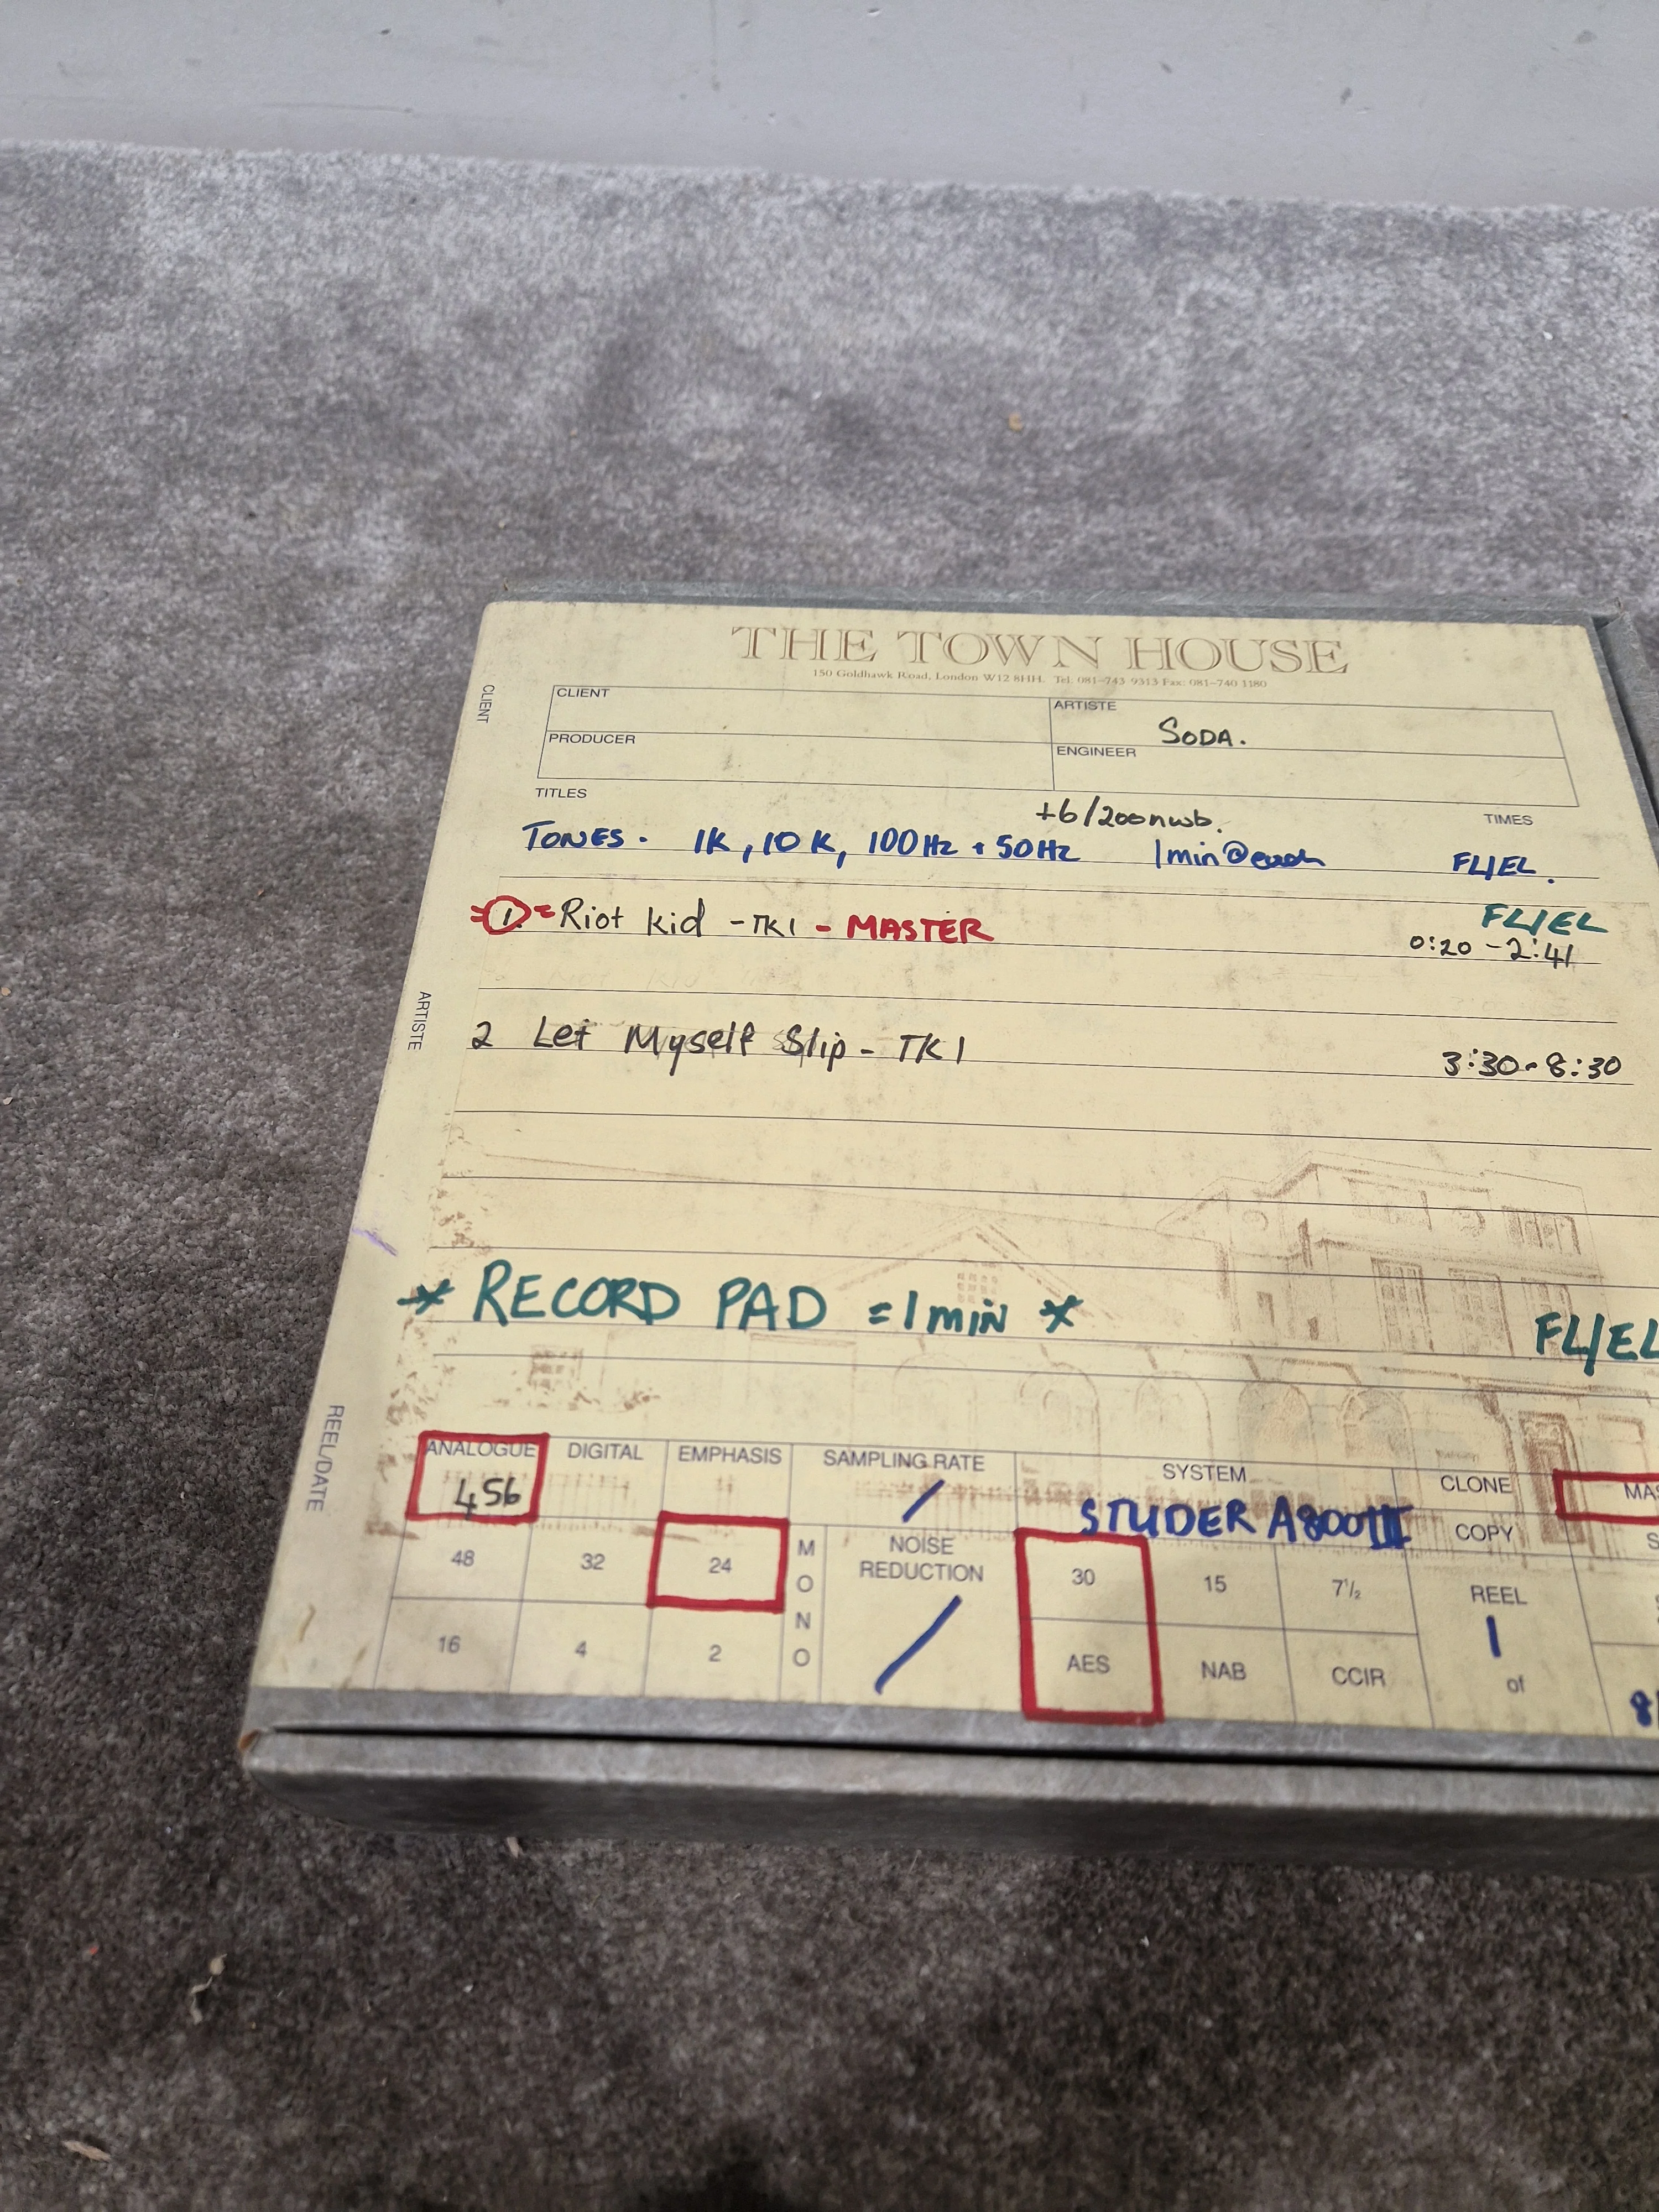 THE TOWN HOUSE
150 Goldhawk Road, London W12 8HH. Tel: 081-743 9313 Fax: 081-740 1180
CLIENT
CLIENT
ARTISTE
SODA.
PRODUCER
ENGINEER
TITLES
+6/200nwb.
TIMES
TONES. 1K, 10K, 100Hz + 50Hz 1min@each FL/EL.
=1.= Riot kid - TK1 - MASTER
FL/EL
0:20 - 2:41
ARTISTE
2 Let Myself Slip - TK1 3:30 - 8:30
* RECORD PAD = 1 min * FL/EL
REEL/DATE
ANALOGUE DIGITAL EMPHASIS SAMPLING RATE SYSTEM CLONE MAS
456 / STUDER A800III COPY S
48 32 24 MONO NOISE REDUCTION 30 15 7½ REEL
16 4 2 / AES NAB CCIR 1 of 8